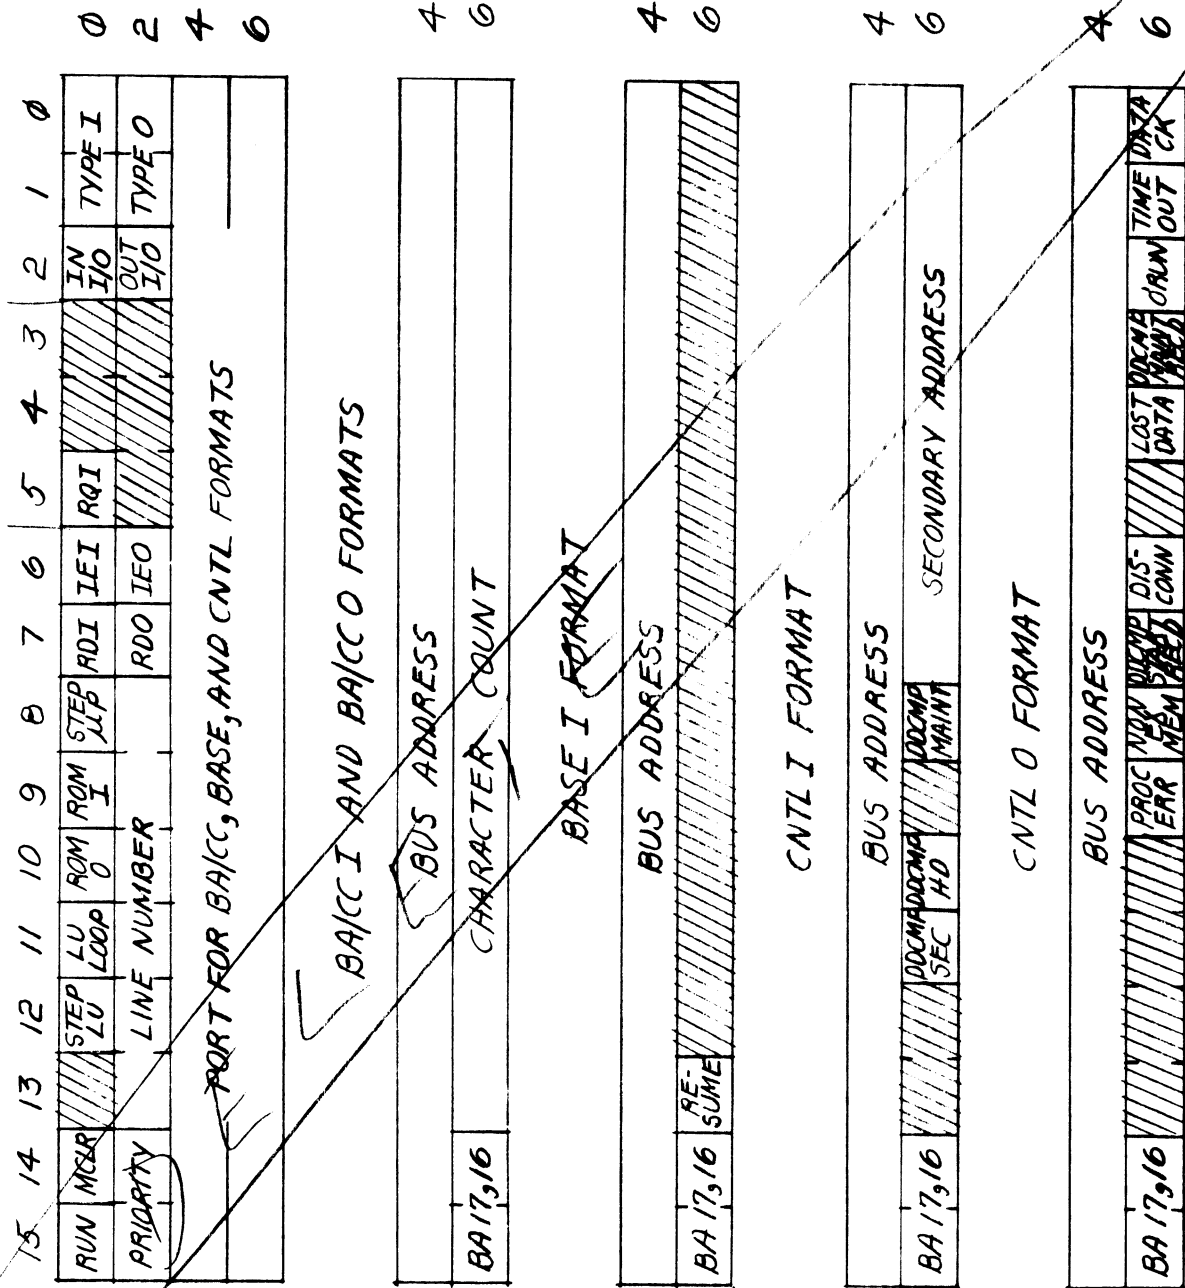 15 14 13 12 11 10 9 8 7 6 5 4 3 2 1 0
RUN MCLR STEP LU LU LOOP ROM O ROM I STEP μP RDI IEI RQI IN I/O TYPE I 0
PRIORITY LINE NUMBER RDO IEO OUT I/O TYPE O 2
PORT FOR BA/CC, BASE, AND CNTL FORMATS 4
6
BA/CC I AND BA/CC O FORMATS
BUS ADDRESS 4
BA 17,16 CHARACTER COUNT 6
BASE I FORMAT
BUS ADDRESS 4
BA 17,16 RE-SUME 6
CNTL I FORMAT
BUS ADDRESS 4
BA 17,16 DDCMP SEC DDCMP HD DDCMP MAINT SECONDARY ADDRESS 6
CNTL O FORMAT
BUS ADDRESS 4
BA 17,16 PROC ERR NON EX MEM DDCMP STRT RECD DIS-CONN LOST DATA DDCMP MAINT RECD ORUN TIME OUT DATA CK 6